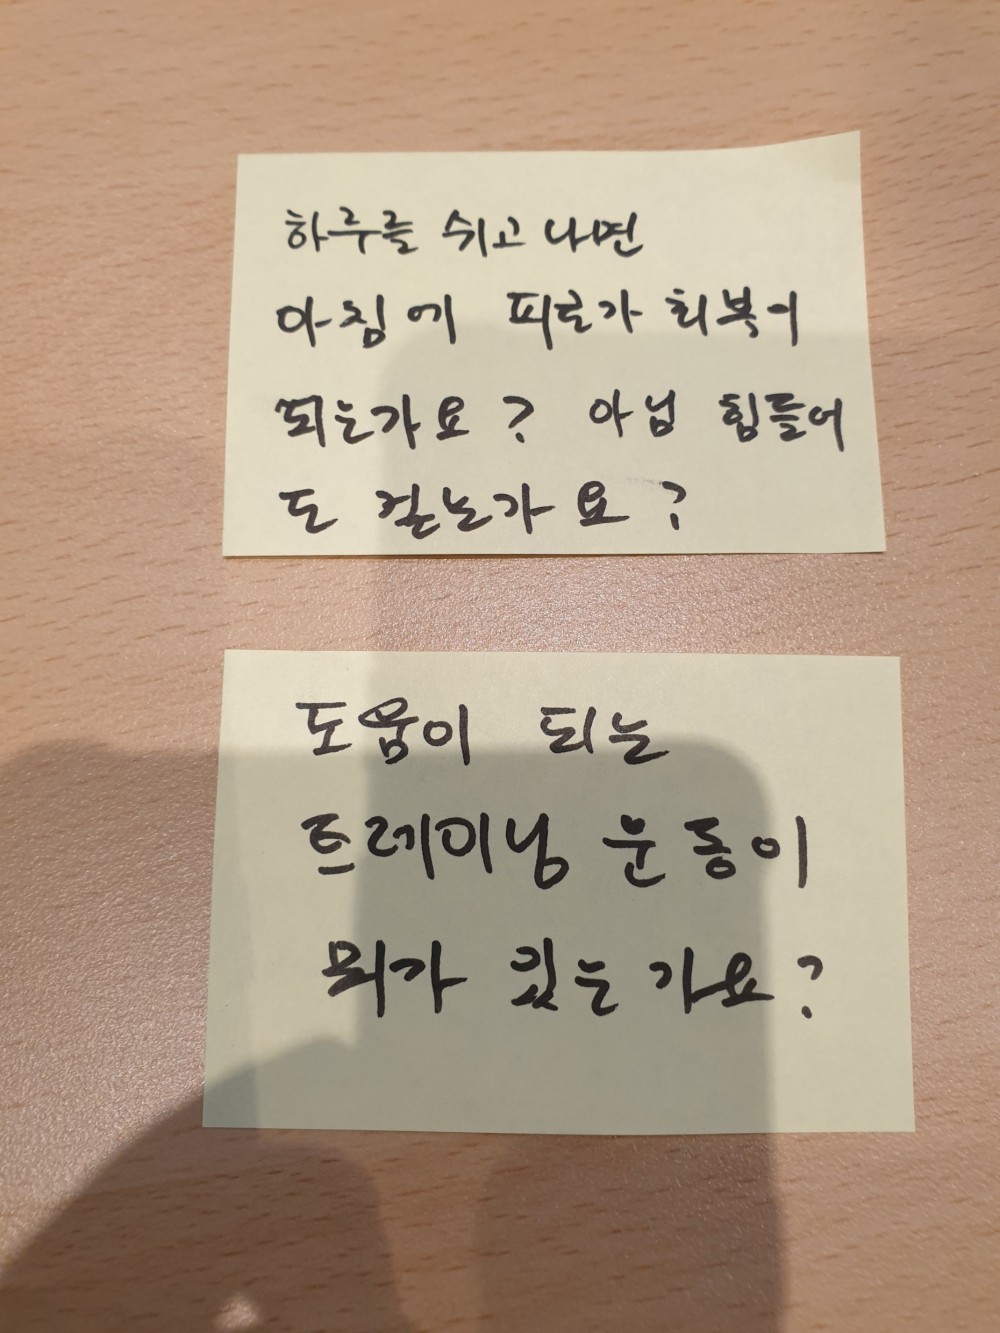 하루를 쉬고 나면
아침에 피로가 회복이
되는가요? 아님 힘들어
도 걷는가요?
도움이 되는
트레이닝 운동이
뭐가 있는가요?